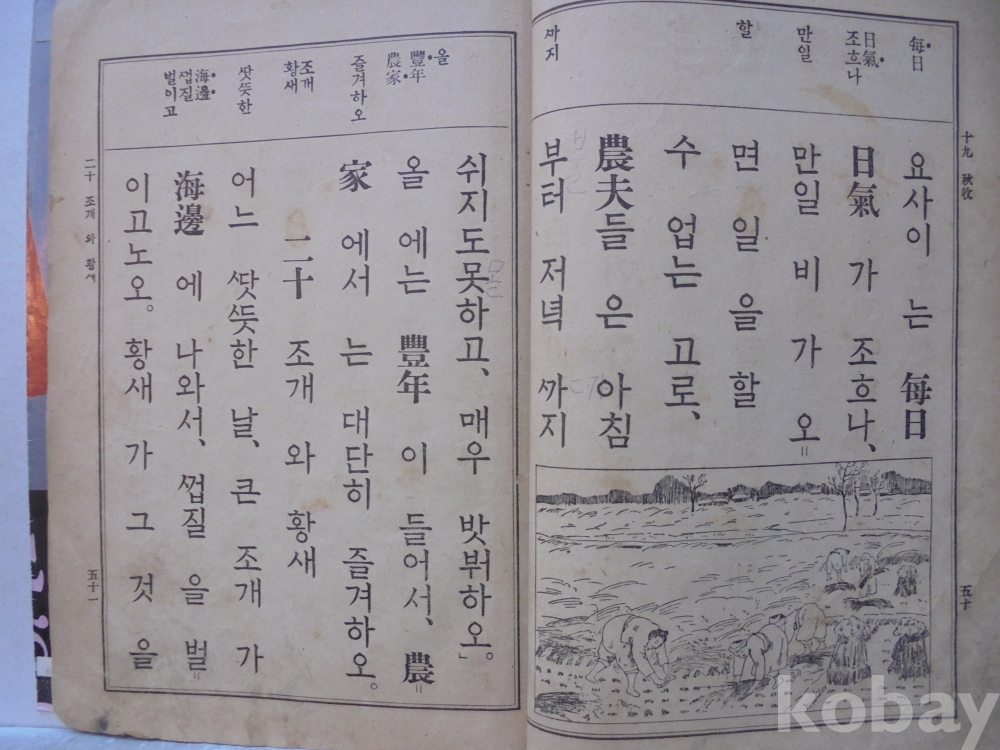 十九 秋收
五十
每日
日氣
조흐나
만일
할
ᄭᅡ지
요사이 는 每日
日氣 가 조흐나、
만일 비 가 오
면 일 을 할
수 업는 고로、
農夫들 은 아침
부터 저녁 ᄭᅡ지
올
豐年
農家
즐겨하오
조개
황새
ᄯᅡᆺᄯᅳᆺ한
海邊
ᄭᅥᆸ질
벌이고
쉬지도못하고、 매우 밧붜하오。」
올 에는 豐年 이 들어서、 農
家 에서 는 대단히 즐겨하오。
二十 조개 와 황새
어느 ᄯᅡᆺᄯᅳᆺ한 날、 큰 조개 가
海邊 에 나와서、 ᄭᅥᆸ질 을 벌
이고노오。 황새 가 그 것 을
二十 조개 와 황새
五十一
kobay